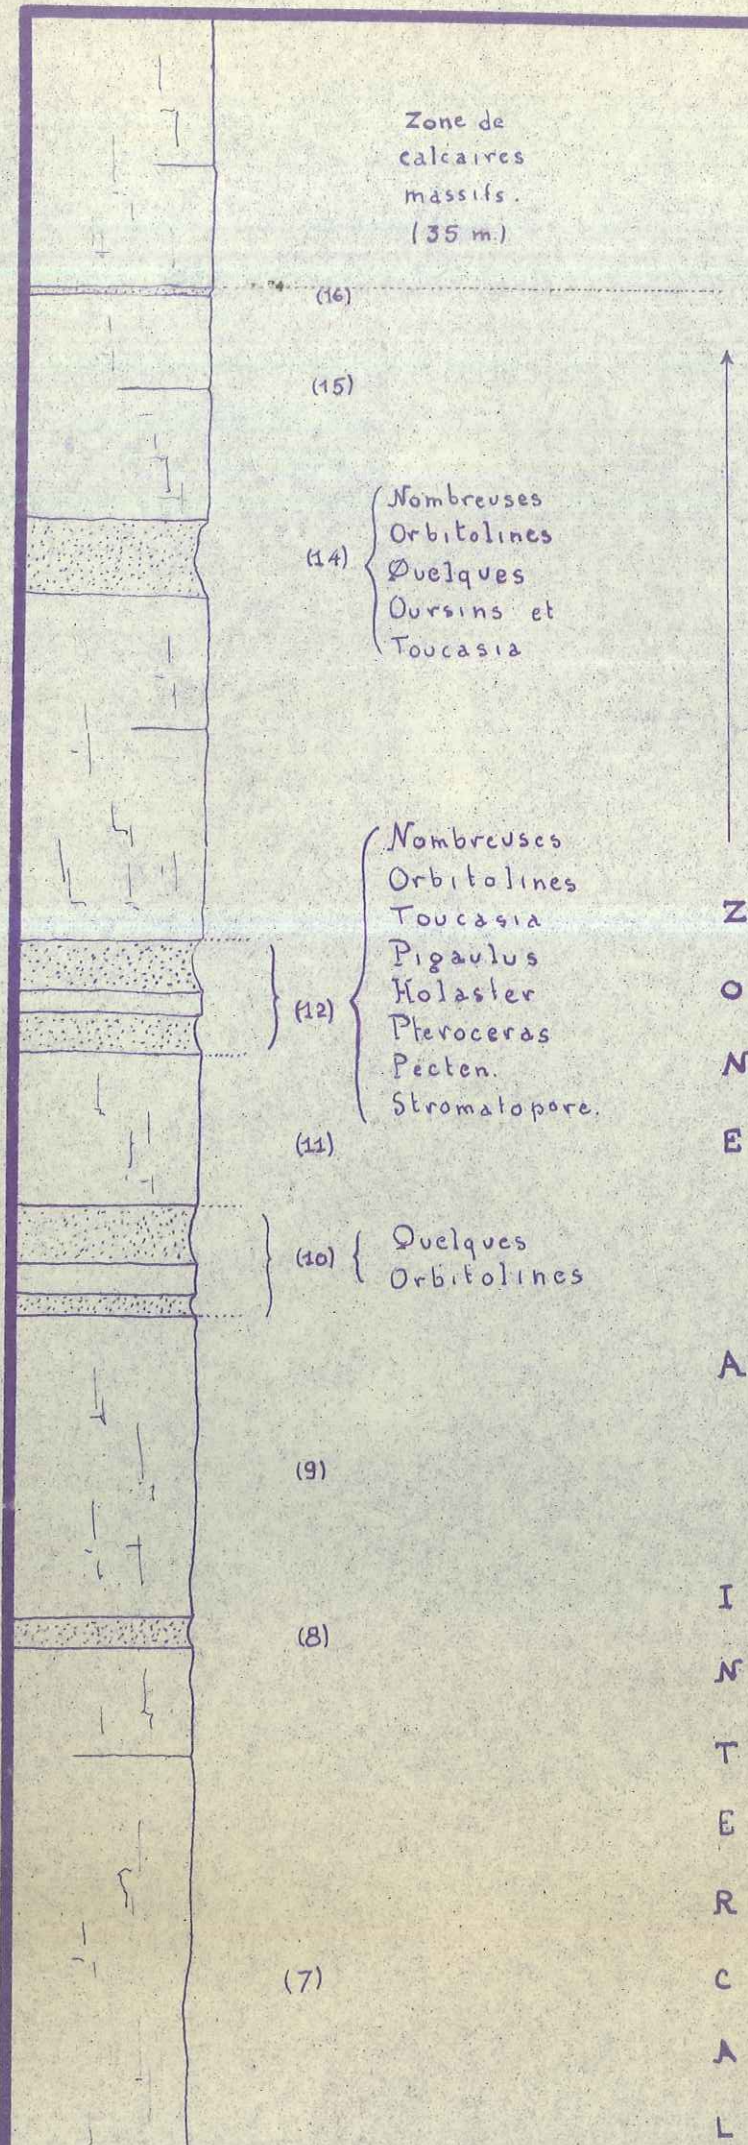 Zone de
calcaires
massifs.
(35 m.)
(16)
(15)
(14)
Nombreuses
Orbitolines
Quelques
Oursins et
Toucasia
(12)
Nombreuses
Orbitolines
Toucasia
Pigaulus
Holaster
Pteroceras
Pecten.
Stromatopore.
(11)
(10)
Quelques
Orbitolines
(9)
(8)
(7)
Z
O
N
E
A
I
N
T
E
R
C
A
L